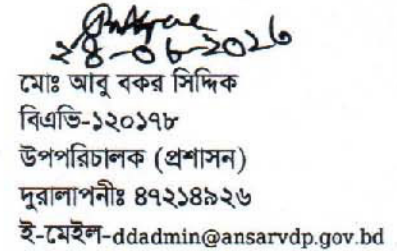 ২৪-০৬-2026
মোঃ আবু বকর সিদ্দিক
বিএভি-১২০১৭৮
উপপরিচালক (প্রশাসন)
দুরালাপনীঃ ৪৭২১৪৯২৬
ই-মেইল-ddadmin@ansarvdp.gov.bd